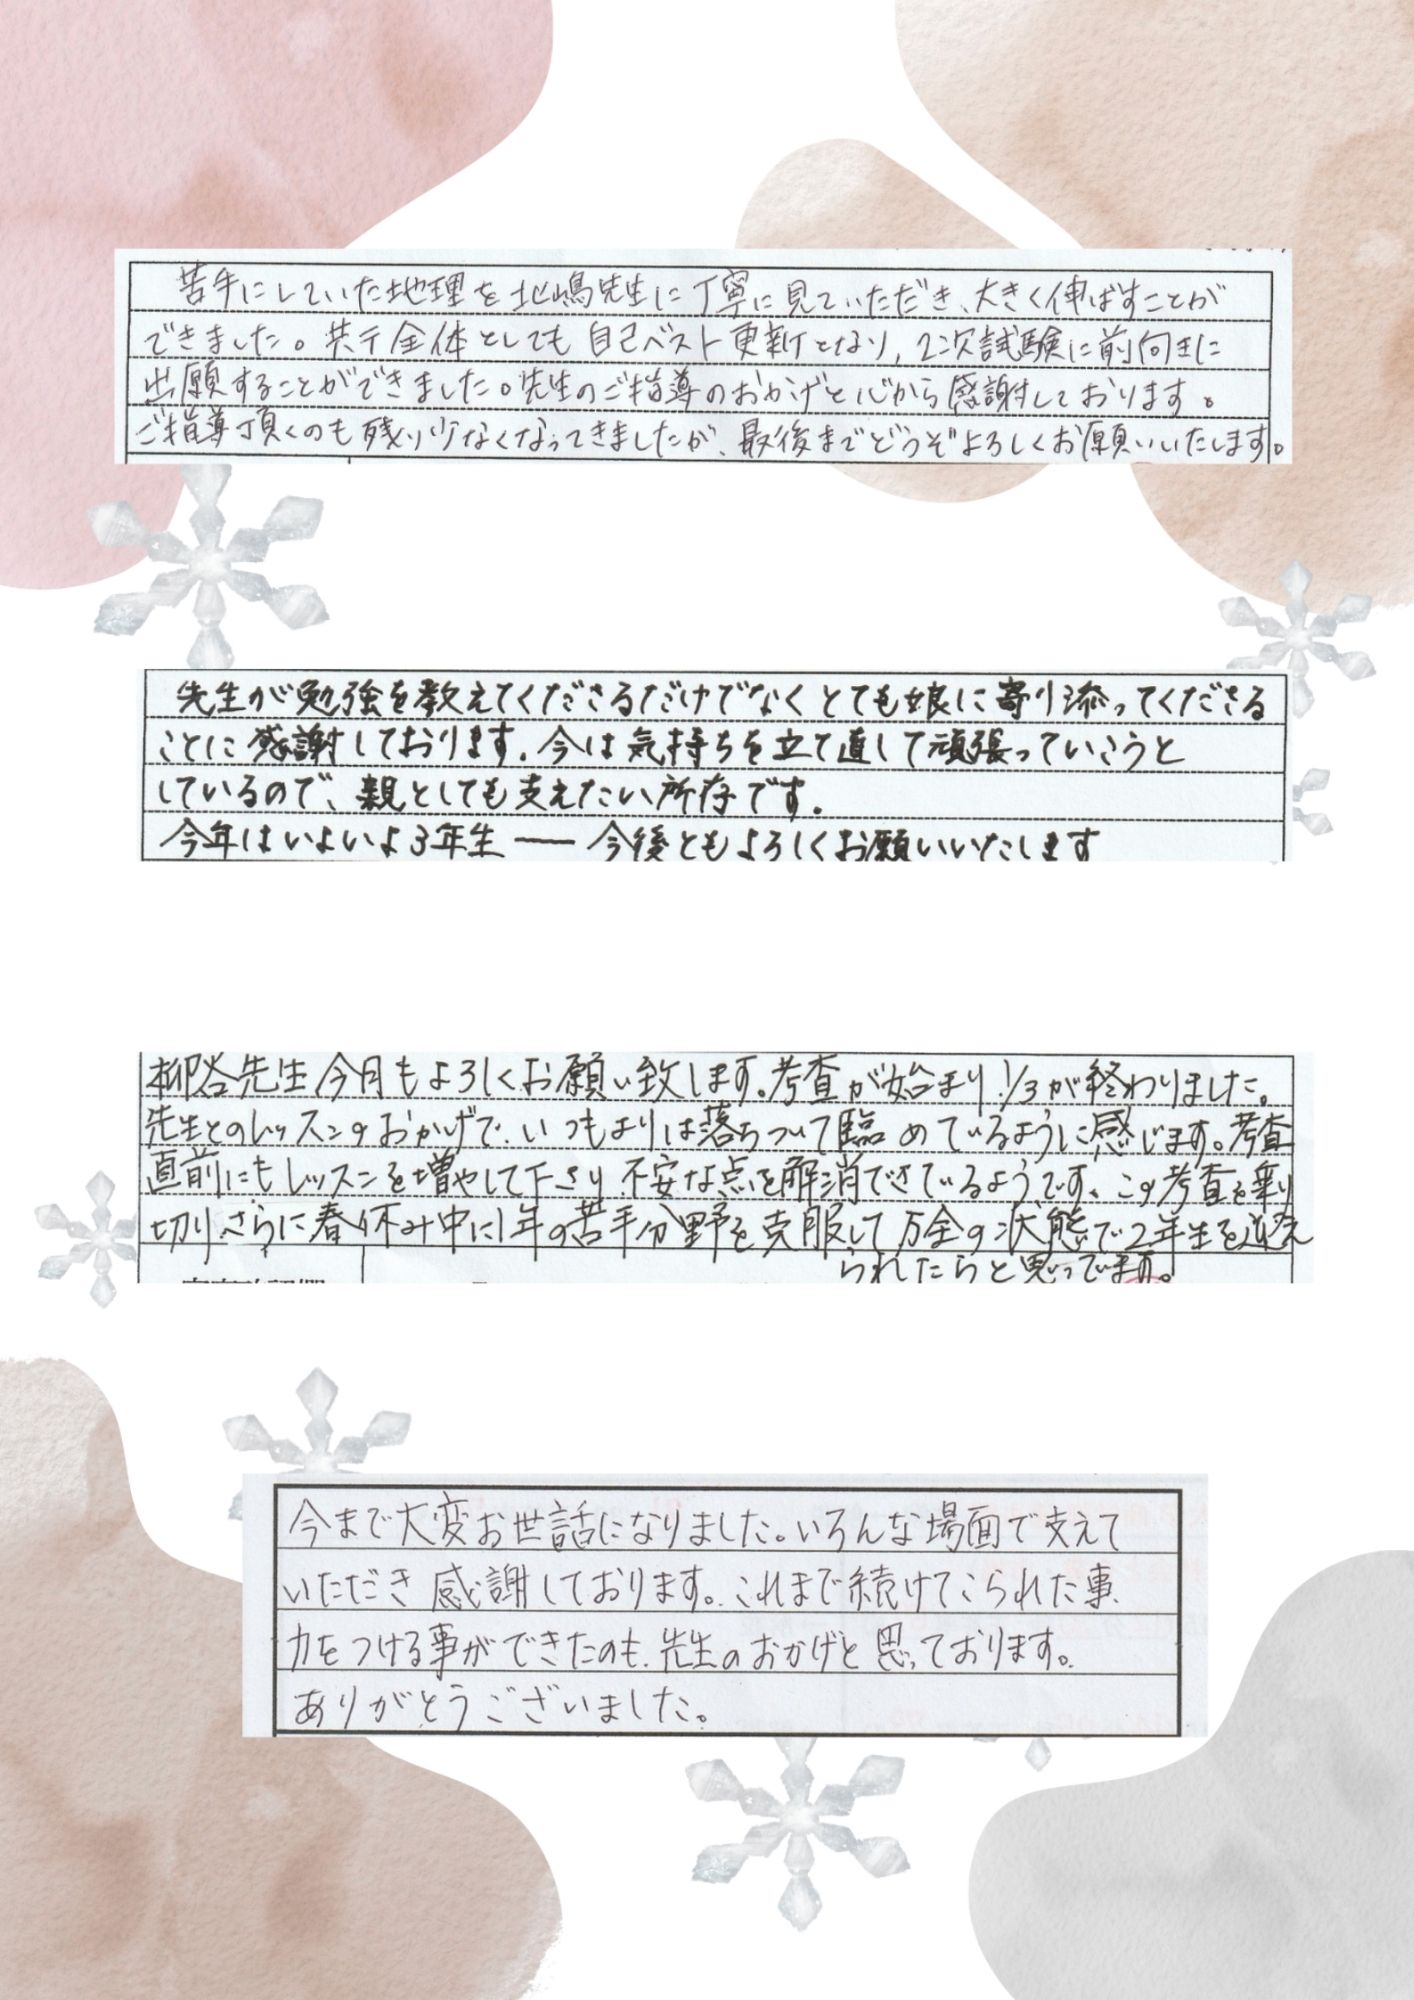 苦手にしていた地理を北嶋先生に丁寧に見ていただき、大きく伸ばすことが
できました。共テ全体としても自己ベスト更新となり、2次試験に前向きに
出願することができました。先生のご指導のおかげと心から感謝しております。
ご指導頂くのも残り少なくなってきましたが、最後までどうぞよろしくお願いいたします。
先生が勉強を教えてくださるだけでなくとても娘に寄り添ってくださる
ことに感謝しております。今は気持ちを立て直して頑張っていこうと
しているので、親としても支えたい所存です。
今年はいよいよ3年生 ── 今後ともよろしくお願いいたします
柳谷先生今月もよろしくお願い致します。考査が始まり1/3が終わりました。
先生とのレッスンのおかげで、いつもよりは落ちついて臨めているように感じます。考査
直前にもレッスンを増やして下さり、不安な点を解消できているようです。この考査を乗り
切り、さらに春休み中に1年の苦手分野を克服して万全の状態で2年生を迎え
られたらと思ってます。
今まで大変お世話になりました。いろんな場面で支えて
いただき感謝しております。これまで続けてこられた事、
力をつける事ができたのも、先生のおかげと思っております。
ありがとうございました。